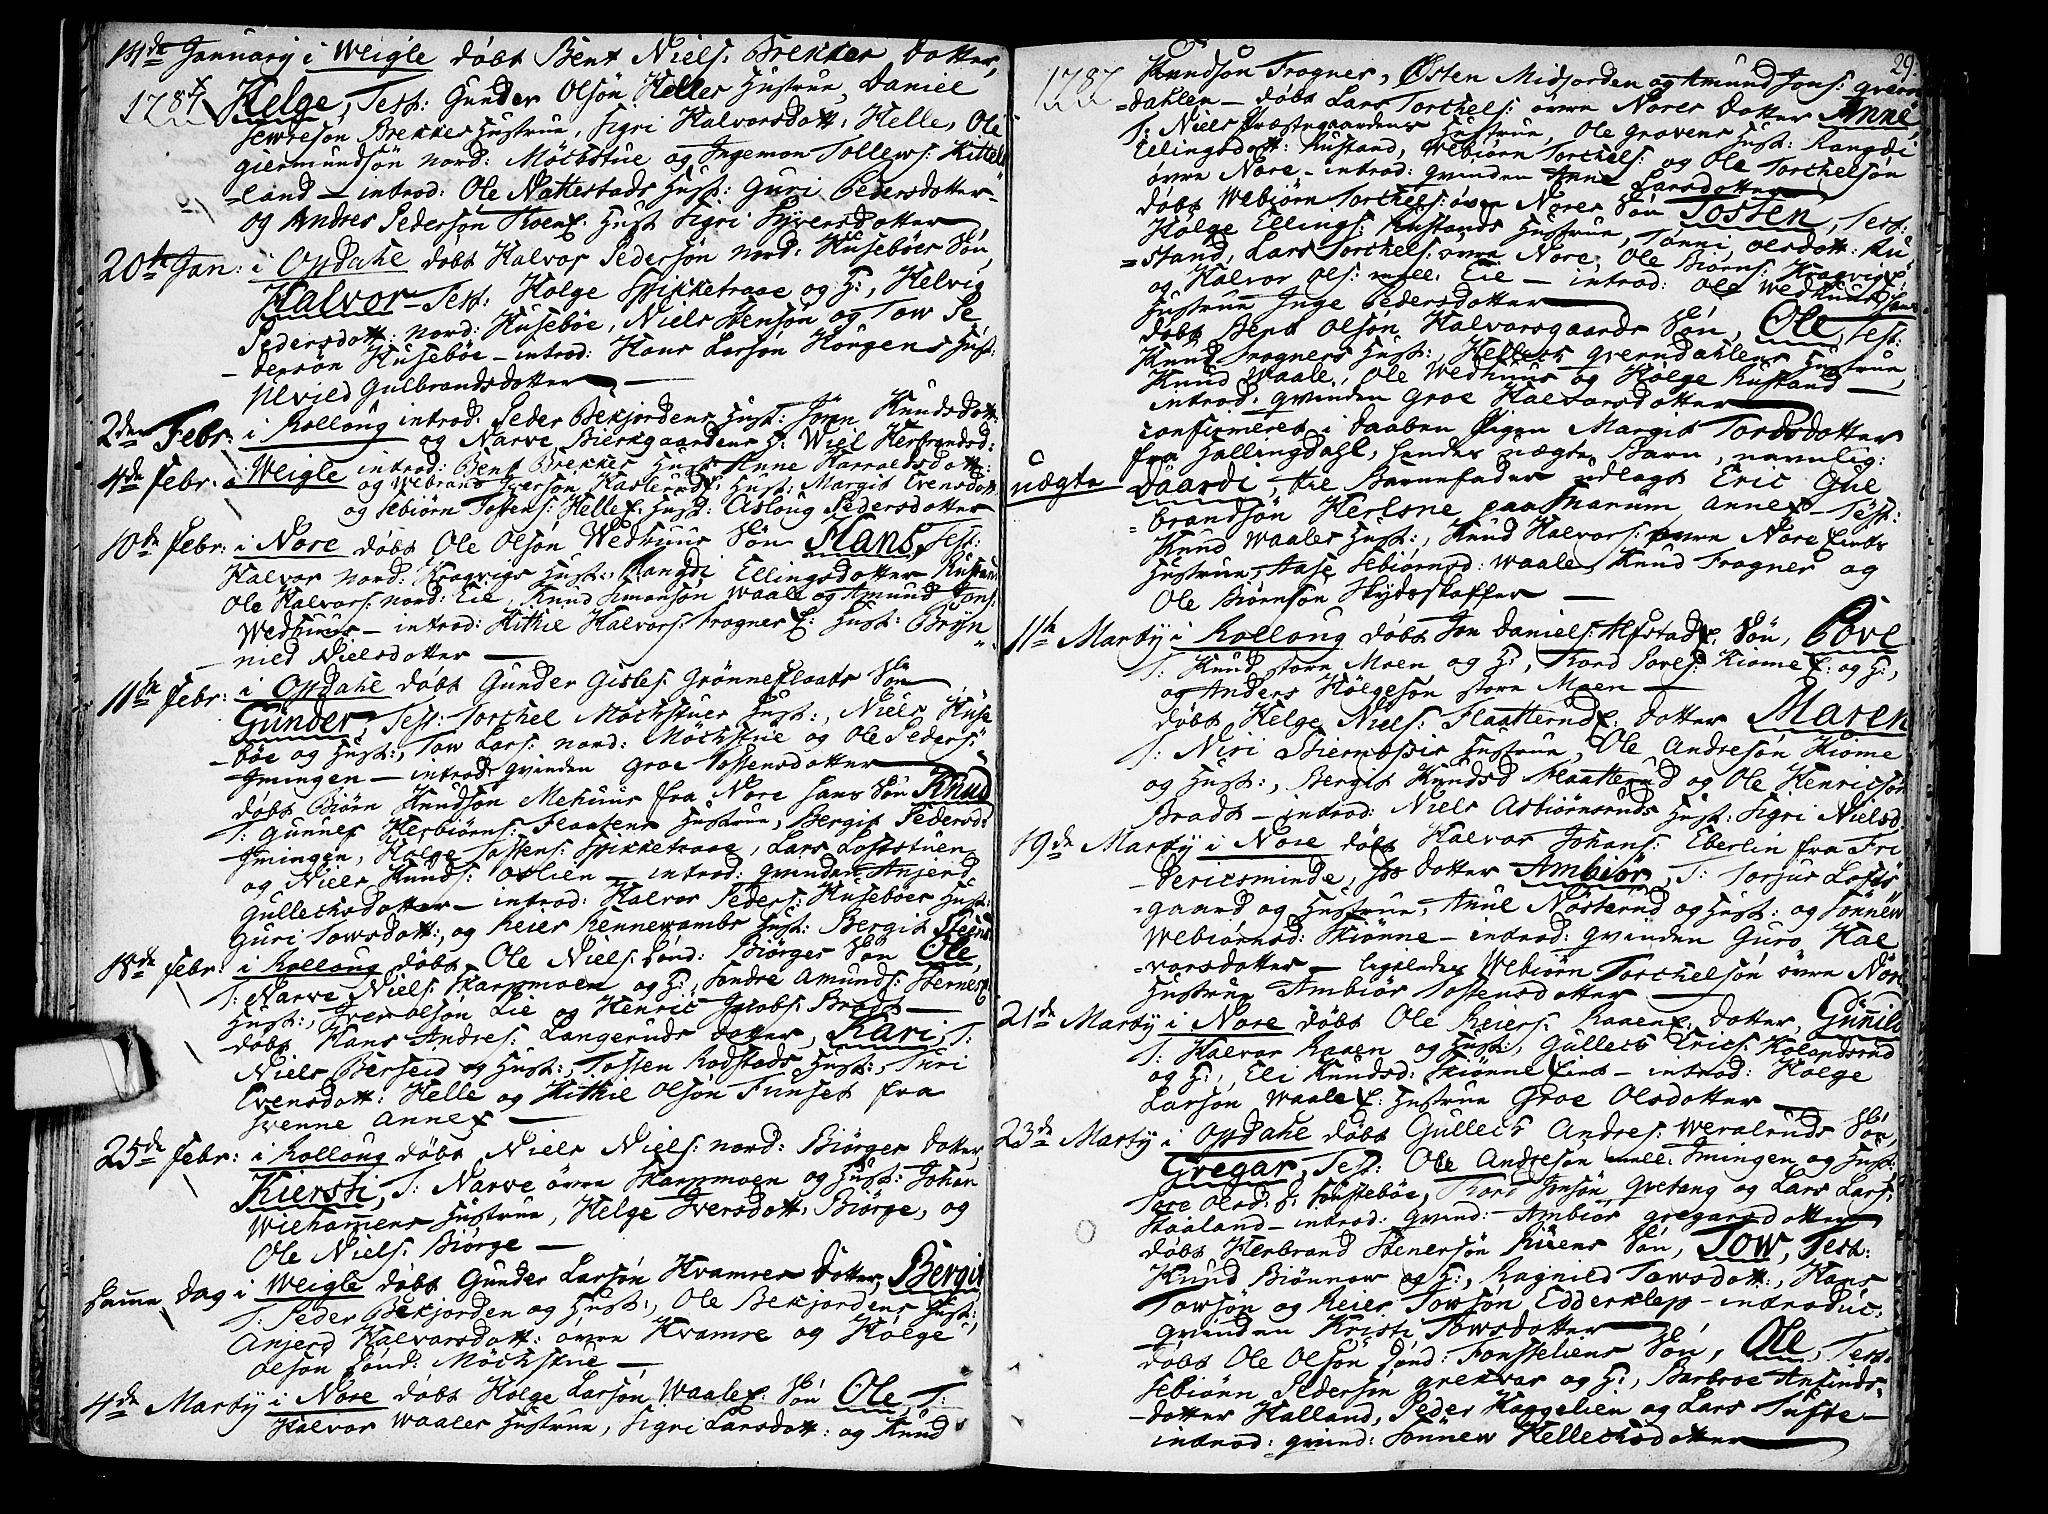 14de January i Weigle döbt Bent Niels: Brekkes Dotter,
1787 Helge, Test: Gunder Olsön Helles Hustrue, Daniel
Sewresön Brekkes Hustrue, Sigri Halvorsdott: Helle, Ole
Giermundsön nord: Möchstue og Ingemon Tollews: Kittels
=land – introd: Ole Nattestads Hust: Guri Pedersdotter –
og Andres Pedersön Hust Sigri Syversdotter
20de Jan: i Opdahl döbt Halvor Pedersön nord: Huseböes Sön,
Halvor – Test: Holge Spikketraae og H:, Helvig
Pedersdott: nord: Huseböe, Niels Stensön og Tow Pe
=dersön Huseböe – introd: Hans Larsön Horgens Hust:
Gulbrandsdotter –
2den Febr: i Rolloug introd: Peder Bekjordens Hust: Knudsdott:
og Narve Bierkgaardens H: Herbrandsd:
4de Febr: i Weigle introd: Bent Brekkes Hust: Anne Harraldsdott:
og Webrand Iverson Hust: Margit Evensdott
og Sebiörn Tostens: Helle Hust: Asloug Pedersdotter
10de Febr: i Nore döbt Ole Olsön Wedhuus Sön Hans, Test:
Halvor nord: Kragvigs Hust: Rangdi Ellingsdotter Rustand
Ole Halvors: nord: Eie, Knud Simonsön Waale og Amund Jons:
Wedhuus – introd: Kittil Halvors: Frogner Hust: Bryn
=nild Nielsdotter –
11te Febr: i Opdahl döbt Gunder Gisles: Grönneflaats Sön
Gunder, Test: Torchel Möchstues Hust:, Niels Huse
=böe og Hust:, Tow Lars: nord: Möchstue og Ole Peders:
Smingen – introd: Qvinden Groe Tostensdotter
döbt Biörn Knudsön Mehuus fra Nore hans Sön Knud
T: Gunner Herbiörns: Flaatens Hustrue, Bergit Pedersd:
Smingen, Holge Tostens: Spikketraae, Lars Loftstuen
og Niels Knuds: Oslien – introd: Qvinden Anjerd
Gullechsdotter – introd: Halvor Peders: Huseböes Hust:
Guri Towsdott:, og Reier Rennewambs Hust: Bergit
18de Febr: i Rolloug döbt Ole Niels: Sönd: Biörges Sön Ole,
T: Narve Niels: Skarpmoen og H:, Sondre Amunds: Sternes
Hust:, Lie og Henric Jacobs: Bradt –
döbt Hans Andres: Langeruds dotter, Kari, T:
Niels Berseid og Hust:, Tosten Rodstads Hust:, Turi
Evensdott: Helle og Kittil Olsön Tunset fra
Svenne Annex –
25de Febr: i Rolloug döbt Niels Niels: nord: Biörges Dotter,
Kiersti, T: Narve övre Skarpmoen og Hust: Johan
Wiehammens Hustrue, Helge Iversdott: Biörge, og
Ole Niels: Biörge –
Samme Dag i Weigle döbt Gunder Larsön Kvamres Dotter, Bergit
T: Peder Bekjorden og Hust:, Ole Bekjordens Hust:
Anjerd Halvorsdott: övre Kvamre og Holge
Olsön Sönd: Möchstue –
4de Marty i Nore döbt Holge Larsön Waale Sön Ole, T:
Halvor Waales Hustrue, Sigri Larsdott: og Knud
29
1787 Knudsön Frogner, Östen Midjorden og Amund Jons: Qvern
=dahlen – döbt Lars Torchels: övre Nores dotter Anne
T: Niels Præstegaardens Hustrue, Ole Gravens Hust: Rangdi
Ellingsdott: Rustand, Webiörn Torchels: og Ole Torchelsön
övre Nore – introd: Qvinden Anne Larsdotter
döbt Webiörn Torchels: övre Nores Sön Tosten, Test:
Holge Ellings: Rustands Hustrue, Tönni Olsdott: Ru
=stand, Lars Torchels: övre Nore, Ole Biörns: Kragvig
og Halvor Ols: mell: Eie – introd: Ole Wedhuus
Hustrue Inge Pedersdotter –
döbt Bent Olsön Halvorsgaards Sön, Ole, Test:
Knud Frogners Hust:, Hellech Qverndahlens Hustrue,
Knud Waale, Ole Wedhuus og Holge Rustand –
introd: Qvinden Groe Halvorsdotter
confirmeret i Daaben Pigen Margit Tordsdotter
fra Hallingdahl, hendes uægte Barn, navnlig:
uægte Daardi, til Barnefader udlagt Eric Gul
=brandsön Herlsne paa Marum Annex – Test:
Knud Waales Hust:, Knud Halvors: övre Nore
Hustrue, Aase Sebiörnsd: Waale, Knud Frogner og
Ole Biörnsön Skydsskaffer –
11te Marty i Rolloug döbt Jon Daniels: Alfstad Sön, Pove
T: Knud store Moen og H:, Tord Poves: Kiome og H:,
og Anders Holgesön store Moen –
döbt Helge Niels: Flaatterud dotter Maren
T: Niri Stiernessis Hustrue, Ole Andresön Kiome
og Hust:, Bergit Knudsd Flaatterud og Ole Henricsön
Bradt – introd: Niels Asbiörnsruds Hust: Sigri Nielsd:
19de Marty i Nore döbt Halvor Johans: Eberlin fra Fri
=dericsminde, dotter Ambiör, T: Torjus Lofts
=gaard og Hustrue, Anne Nösterud og Hust: og Sönnew
Webiörnsd: Skiönne – introd: Qvinden Guro Hal
=vorsdotter – ligeledes Webiörn Torchelsön övre Nore
Hustrue Ambiör Tostensdotter –
21de Marty i Nore döbt Ole Reiers: Raaen dotter, Gunild
T: Halvor Raaen og Hust:, Gullech Erics: Kolandsrud
og H:, Eli Knudsd: Skiönne – introd: Holge
Larsön Waale Hustrue Groe Olsdotter –
23de Marty i Opdahl döbt Gullech Andres: Weraldruds Sön,
Gregar, Test: Ole Andresön mell: Smingen og Hust:
Tore Olsd: S: Fönsteböe, Tord Jonsön Qvetang og Lars Lars:
Skaaland – introd: Qvind: Ambiör Gregarsdotter
döbt Herbrand Stenersön Ruens Sön, Tow, Test:
Knud Biönnow og H:, Ragnild Towsdott:, Hans
Towsön og Reier Towsön Edderklep – introduc:
Qvinden Kristi Towsdotter
döbt Ole Olsön Sönd: Fönsteliens Sön, Ole, Test:
Sebiörn Pedersön Grekvar og H:, Barbroe Amunds
=dotter Halland, Peder Haggelien og Lars Tufte –
introd: Qvind: Sönnew Hellechsdotter